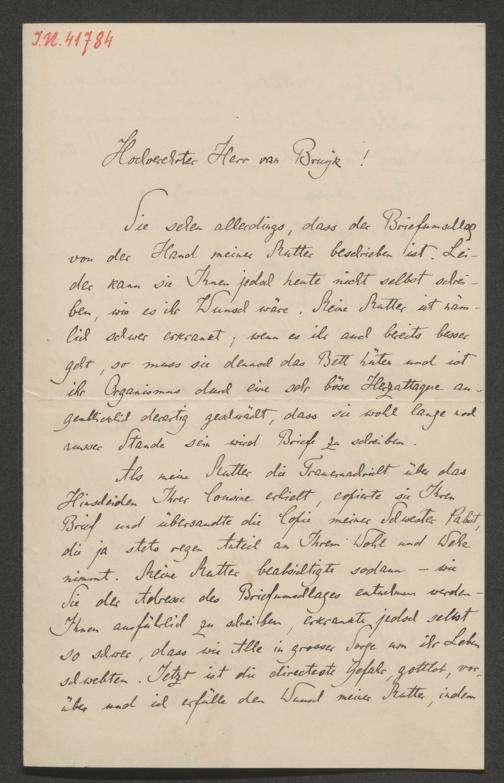 I.N. 41784
Hochverehrter Herr van Bruyk!
Sie sehen allerdings, dass der Briefumschlag
von der Hand meiner Mutter beschrieben ist. Lei-
der kann sie Ihnen jedoch heute nicht selbst schrei-
ben, wie es ihr Wunsch wäre. Meine Mutter ist näm-
lich schwer erkrankt; wenn es ihr auch bereits besser
geht, so muss sie dennoch das Bett hüten und ist
ihr Organismus durch eine sehr böse Herzattaque au-
genblicklich derartig geschwächt, dass sie wohl lange noch
ausser Stande sein wird Briefe zu schreiben.
Als meine Mutter die Trauernachricht über das
Hinscheiden Ihrer Cousine erhielt, copierte sie Ihren
Brief und übersandte die Copie meiner Schwester Pabst,
die ja stets regen Anteil an Ihrem Wohl und Wehe
nimmt. Meine Mutter beabsichtigte sodann – wie
Sie der Adresse des Briefumschlages entnehmen werden –
Ihnen ausführlich zu schreiben, erkrankte jedoch selbst
so schwer, dass wir Alle in grosser Sorge um ihr Leben
schwebten. Jetzt ist die directeste Gefahr, gottlob, vor-
über und ich erfülle den Wunsch meiner Mutter, indem